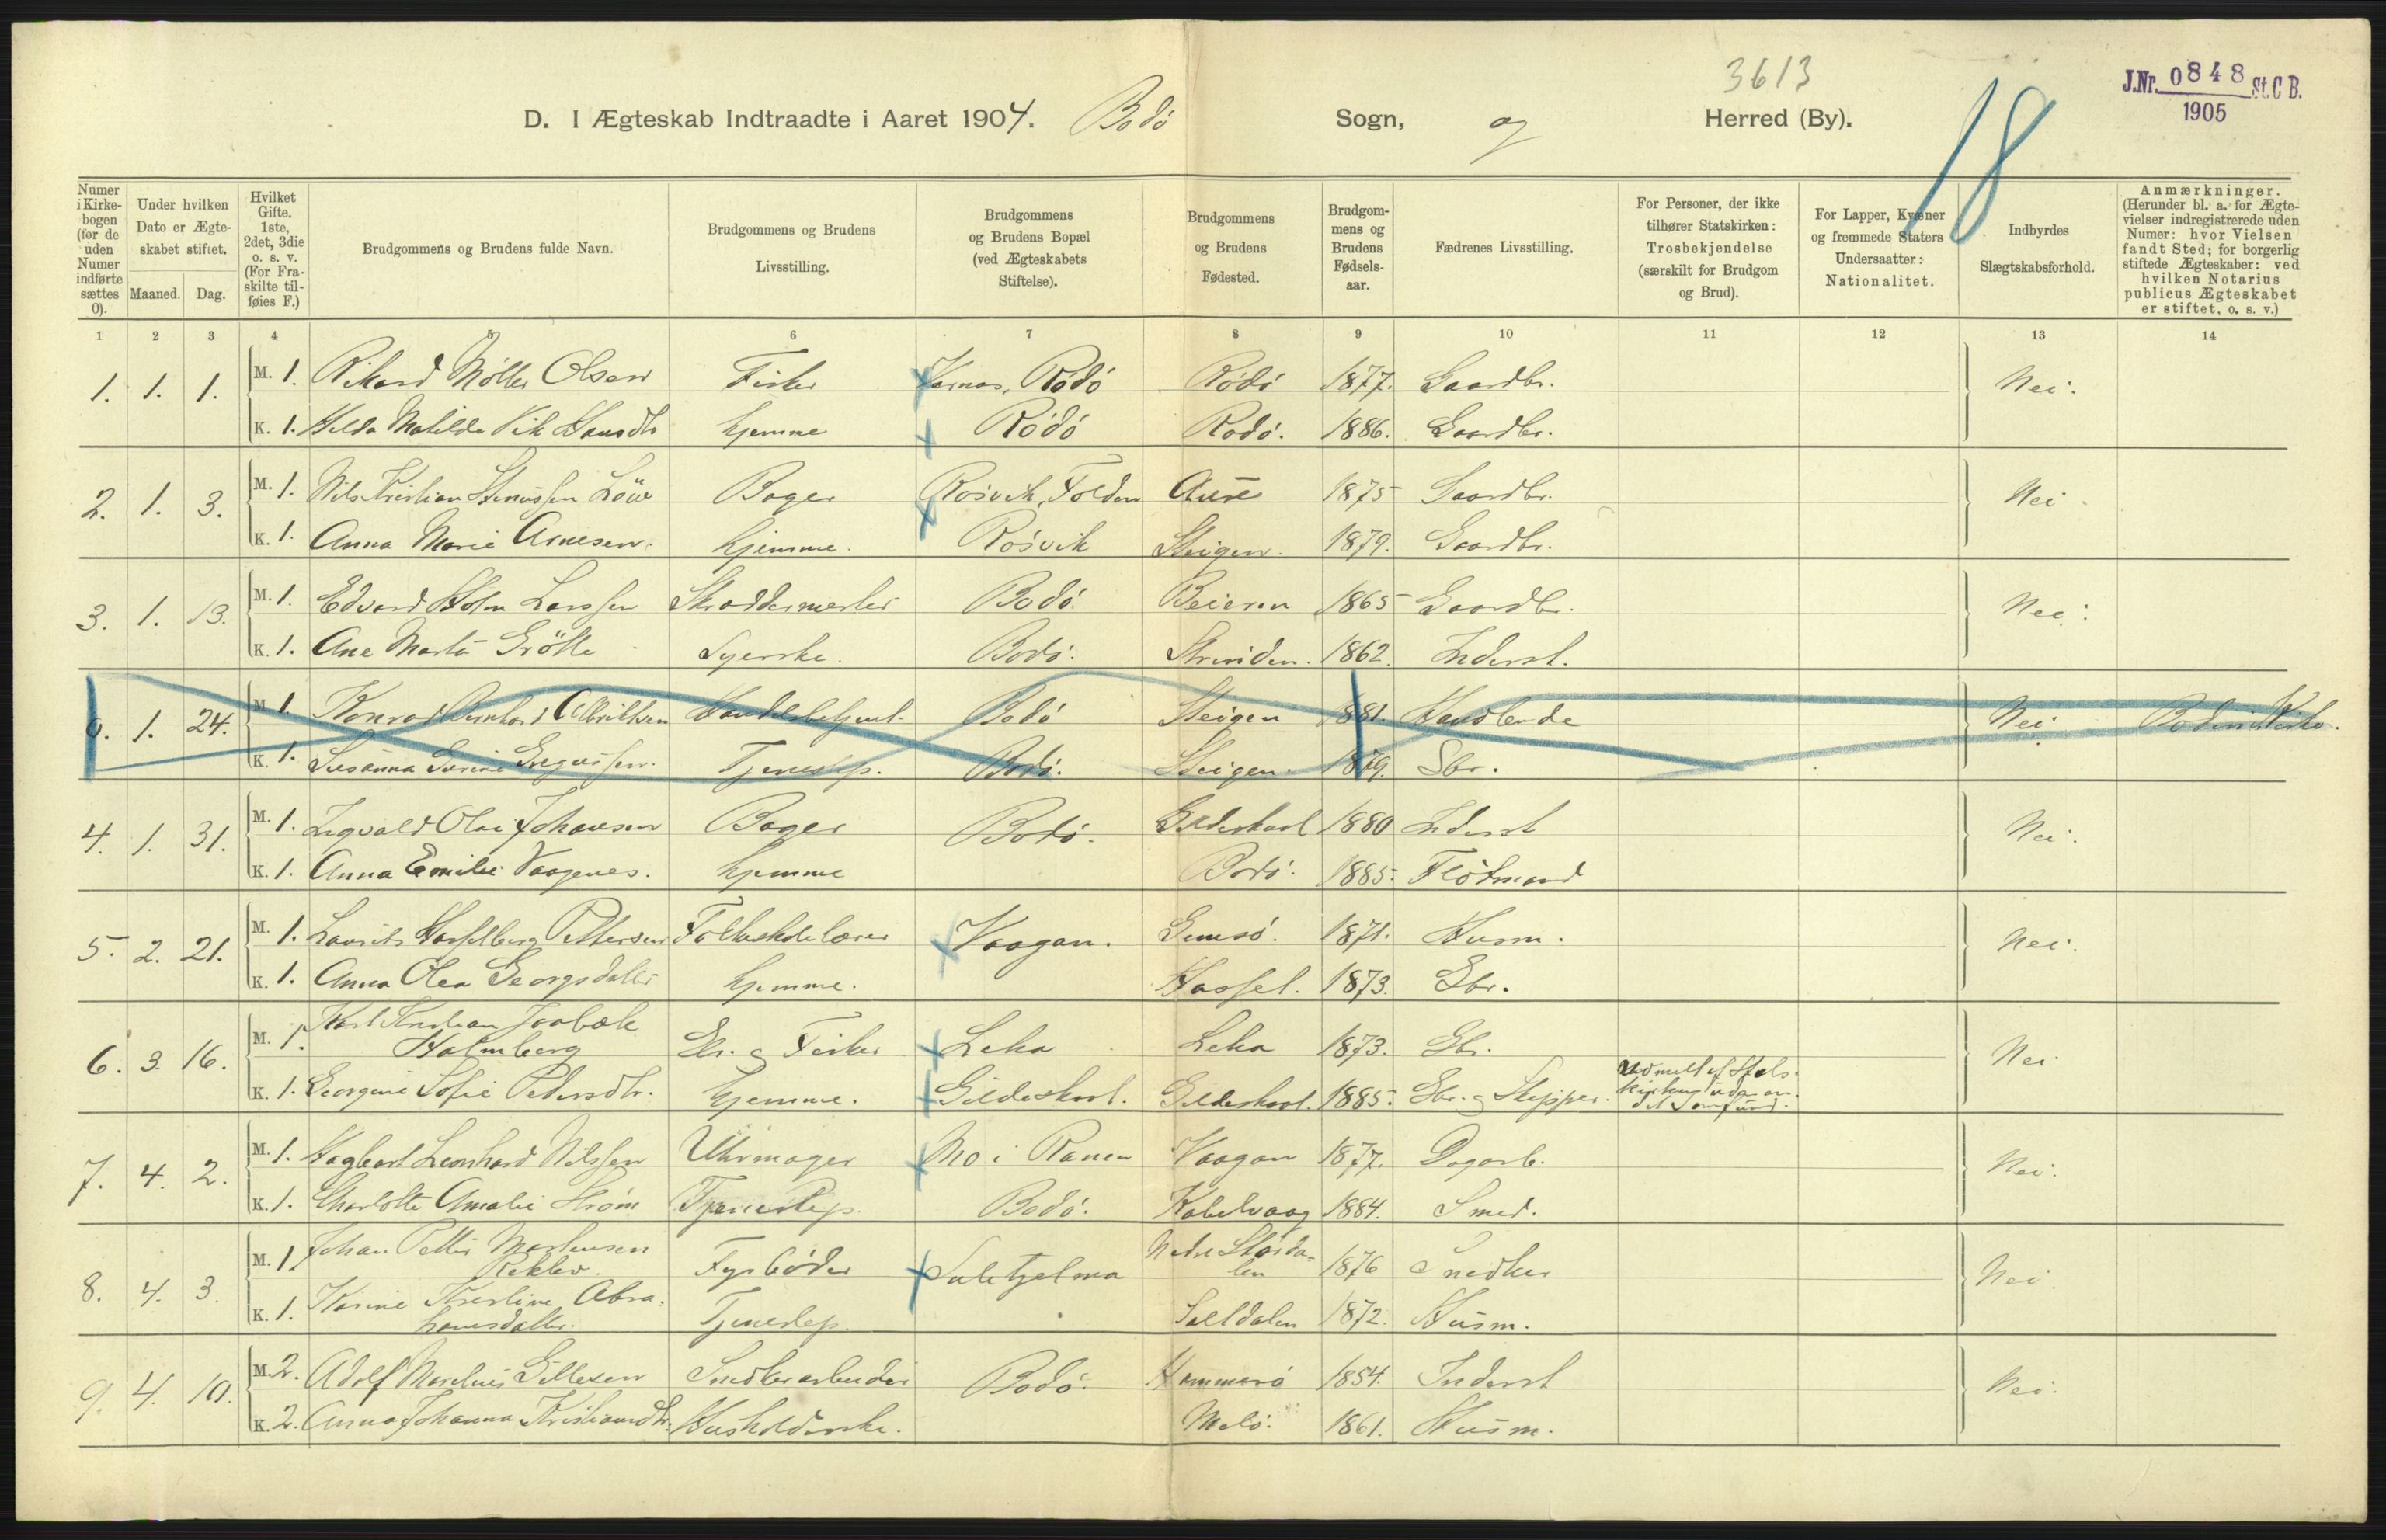 3613
18
J.Nr. 0848 St.C.B.
1905
D. I Ægteskab Indtraadte i Aaret 1904. Bodö Sogn, og Herred (By).
Numer i Kirkebogen (for de uden Numer indførte sættes 0).
Under hvilken Dato er Ægteskabet stiftet.
Maaned. Dag.
Hvilket Gifte. 1ste, 2det, 3die o. s. v. (For Fraskilte tilføies F.)
Brudgommens og Brudens fulde Navn.
Brudgommens og Brudens Livsstilling.
Brudgommens og Brudens Bopæl (ved Ægteskabets Stiftelse).
Brudgommens og Brudens Fødested.
Brudgommens og Brudens Fødselsaar.
Fædrenes Livsstilling.
For Personer, der ikke tilhører Statskirken: Trosbekjendelse (særskilt for Brudgom og Brud).
For Lapper, Kvæner og fremmede Staters Undersaatter: Nationalitet.
Indbyrdes Slægtskabsforhold.
Anmærkninger. (Herunder bl. a. for Ægtevielser indregistrerede uden Numer: hvor Vielsen fandt Sted; for borgerlig stiftede Ægteskaber: ved hvilken Notarius publicus Ægteskabet er stiftet, o. s. v.)
1 2 3 4 5 6 7 8 9 10 11 12 13 14
1. 1. 1. M. 1. Rikard Möller Olsen Fisker Rödö Rödö 1877. Gaardbr. Nei.
K. 1. Hilda Matilde Vik Hansdtr hjemme Rödö Rödö. 1886. Gaardbr.
2. 1. 3. M. 1. Nils Kristian Löw Bager Rösvik, Folden Aure 1875 Gaardbr. Nei
K. 1. Anna Marie Arnesen. hjemme. Rösvik Steigen. 1879. Gaardbr.
3. 1. 13. M. 1. Edvard Holm Larssen Skræddermester Bodö. Beieren 1865 Gaardbr. Nei.
K. 1. Ane Marta Grötte Syerske. Bodö. Strinden. 1862. Inderst.
0. 1. 24. M. 1. Konrad Bernhard Albriktsen Handelsbetjent. Bodö Steigen 1881. Handlende Nei. Bodin Kirke.
K. 1. Susanna Tjenestep. Bodö. Steigen. 1879. Gbr.
4. 1. 31. M. 1. Ingvald Olai Johansen Bager Bodö. Gildeskaal 1880 Inderst Nei.
K. 1. Anna Emilie Vaagenes. hjemme Bodö. 1885. Flötmand
5. 2. 21. M. 1. Laurits Hasselberg Pettersen Folkeskolelærer Vaagan. Gimsö. 1871. Husm. Nei.
K. 1. Anna Olea Georgsdatter hjemme. Hassel. 1873. Gbr.
6. 3. 16. M. 1. Karl Kristian
Holmberg Gbr. og Fisker Leka Leka 1873. Gbr. Nei
K. 1. Georgine Sofie Pedersdtr. hjemme. Gildeskaal. Gildeskaal. 1885. Gbr. og Skipper. Udmeldt af Stats-
7. 4. 2. M. 1. Hagbart Leonhard Nilssen Uhrmager Mo i Ranen Vaagan 1877. Dagarb. Nei.
K. 1. Charlotte Amalie Ström Tjenestep. Bodö. Kabelvaag 1884. Smed.
8. 4. 3. M. 1. Johan Petter Mortensen
Fyrböder Sulitjelma Nedre Stördalen 1876 Snedker Nei.
K. 1. Karine Kristine Abrahamsdatter. Tjenestep. Saltdalen 1872. Husm.
9. 4. 10. M. 2. Adolf Marelius Gillesen Snedkerarbeider Bodö. Hammerö 1854. Inderst Nei.
K. 2. Anna Johanna Kristiansdtr. Husholderske. Melö. 1861. Husm.